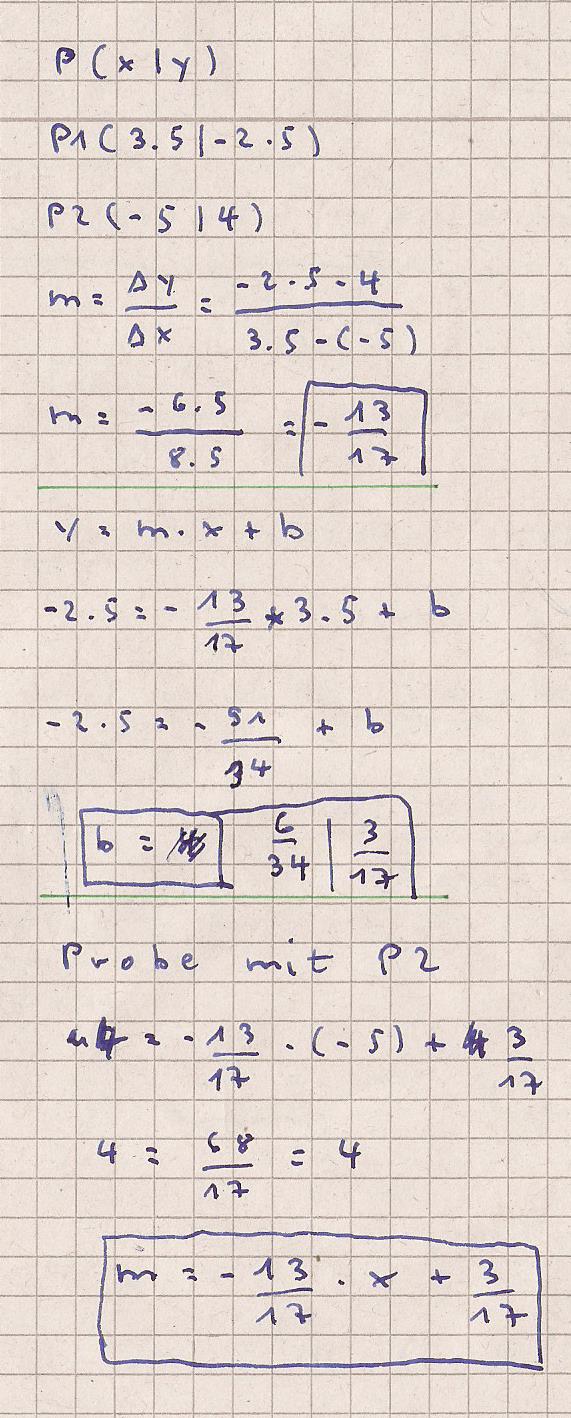 P(x|y)
P1(3.5|-2.5)
P2(-5|4)
m = Δy/Δx = (-2.5-4)/(3.5-(-5))
m = -6.5/8.5 = -13/17
y = m·x + b
-2.5 = -13/17 * 3.5 + b
-2.5 = -91/34 + b
b = 6/34 | 3/17
Probe mit P2
4 = -13/17 · (-5) + 3/17
4 = 68/17 = 4
m = -13/17 · x + 3/17